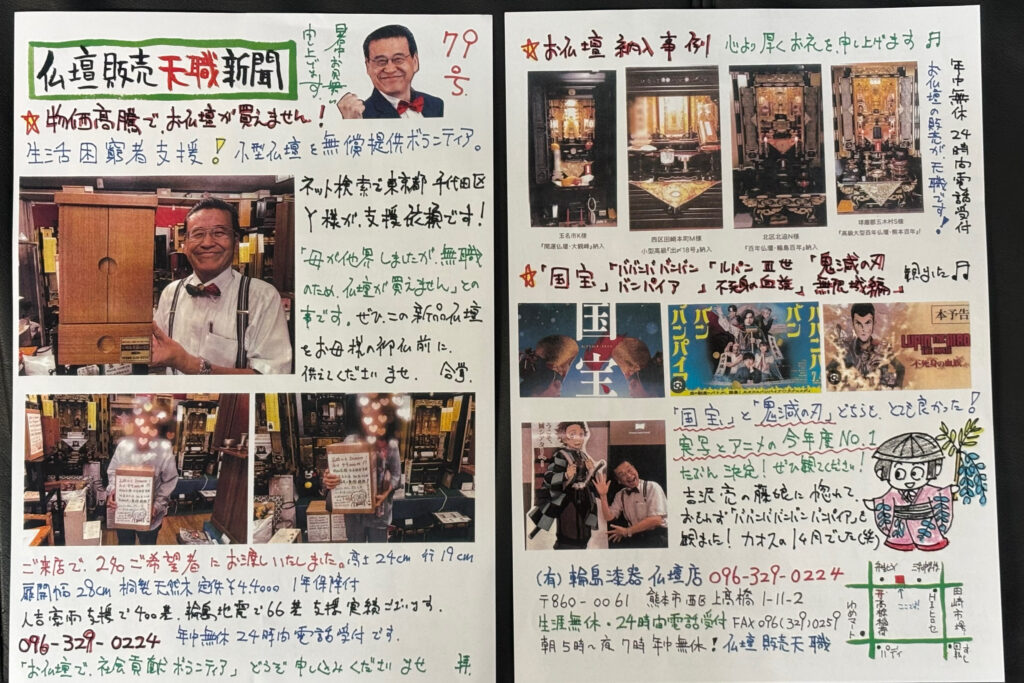 仏壇販売天職新聞
暑中お見舞い
申し上げます。
79
号.
☆物価高騰で、お仏壇が買えません!
生活困窮者支援! 小型仏壇を無償提供ボランティア。
ネット検索で東京都千代田区
Y様が、支援依頼です!
「母が他界しましたが、無職
のため、仏壇が買えません」との
事です。ぜひ、この新品仏壇
をお母様の御仏前に、
供えてくださいませ 合掌.
ご来店で、2名ご希望者にお渡しいたしました。高さ24cm 行19cm
扉開幅28cm 桐製天然木 定価¥44,000 1年保障付
人吉豪雨支援で400基、輪島地震で66基支援実績ございます.
096-329-0224 年中無休24時間電話受付です.
「お仏壇で、社会貢献ボランティア」どうぞ申し込みくださいませ 拝.
☆お仏壇納入事例 心より厚くお礼を申し上げます♬
年中無休 24時間電話受付
お仏壇の販売が天職です!
玉名市K様
『開運仏壇・大観峰』納入
西区田崎本町M様
小型高級『出〆18号』納入
北区北迫N様
『百年仏壇・輪島百年』納入
球磨郡五木村S様
『高級大型百年仏壇・熊本百年』
☆「国宝」「ババンババンバンバンパイア」「ルパン三世 不死身の血族」「鬼滅の刃 無限城編」観ました♬
国宝
ババンババンバンバンパイア
本予告
LUPIN THE IIIRD
不死身の血族
「国宝」と「鬼滅の刃」どちらも、とても良かった!
実写とアニメの今年度No.1
たぶん決定!ぜひ観てください!
吉沢亮の藤娘に惚れて、
おもわず「ババンババンバンバンパイア」も
観ました!カオスの1ヶ月でした(笑)
(有)輪島漆器仏壇店 096-329-0224
〒860-0061 熊本市西区上高橋1-11-2
生涯無休・24時間電話受付 FAX096(329)0259
朝5時〜夜7時 年中無休!仏壇販売天職
ゆめマート
高橋稲荷
ここです
田崎市場